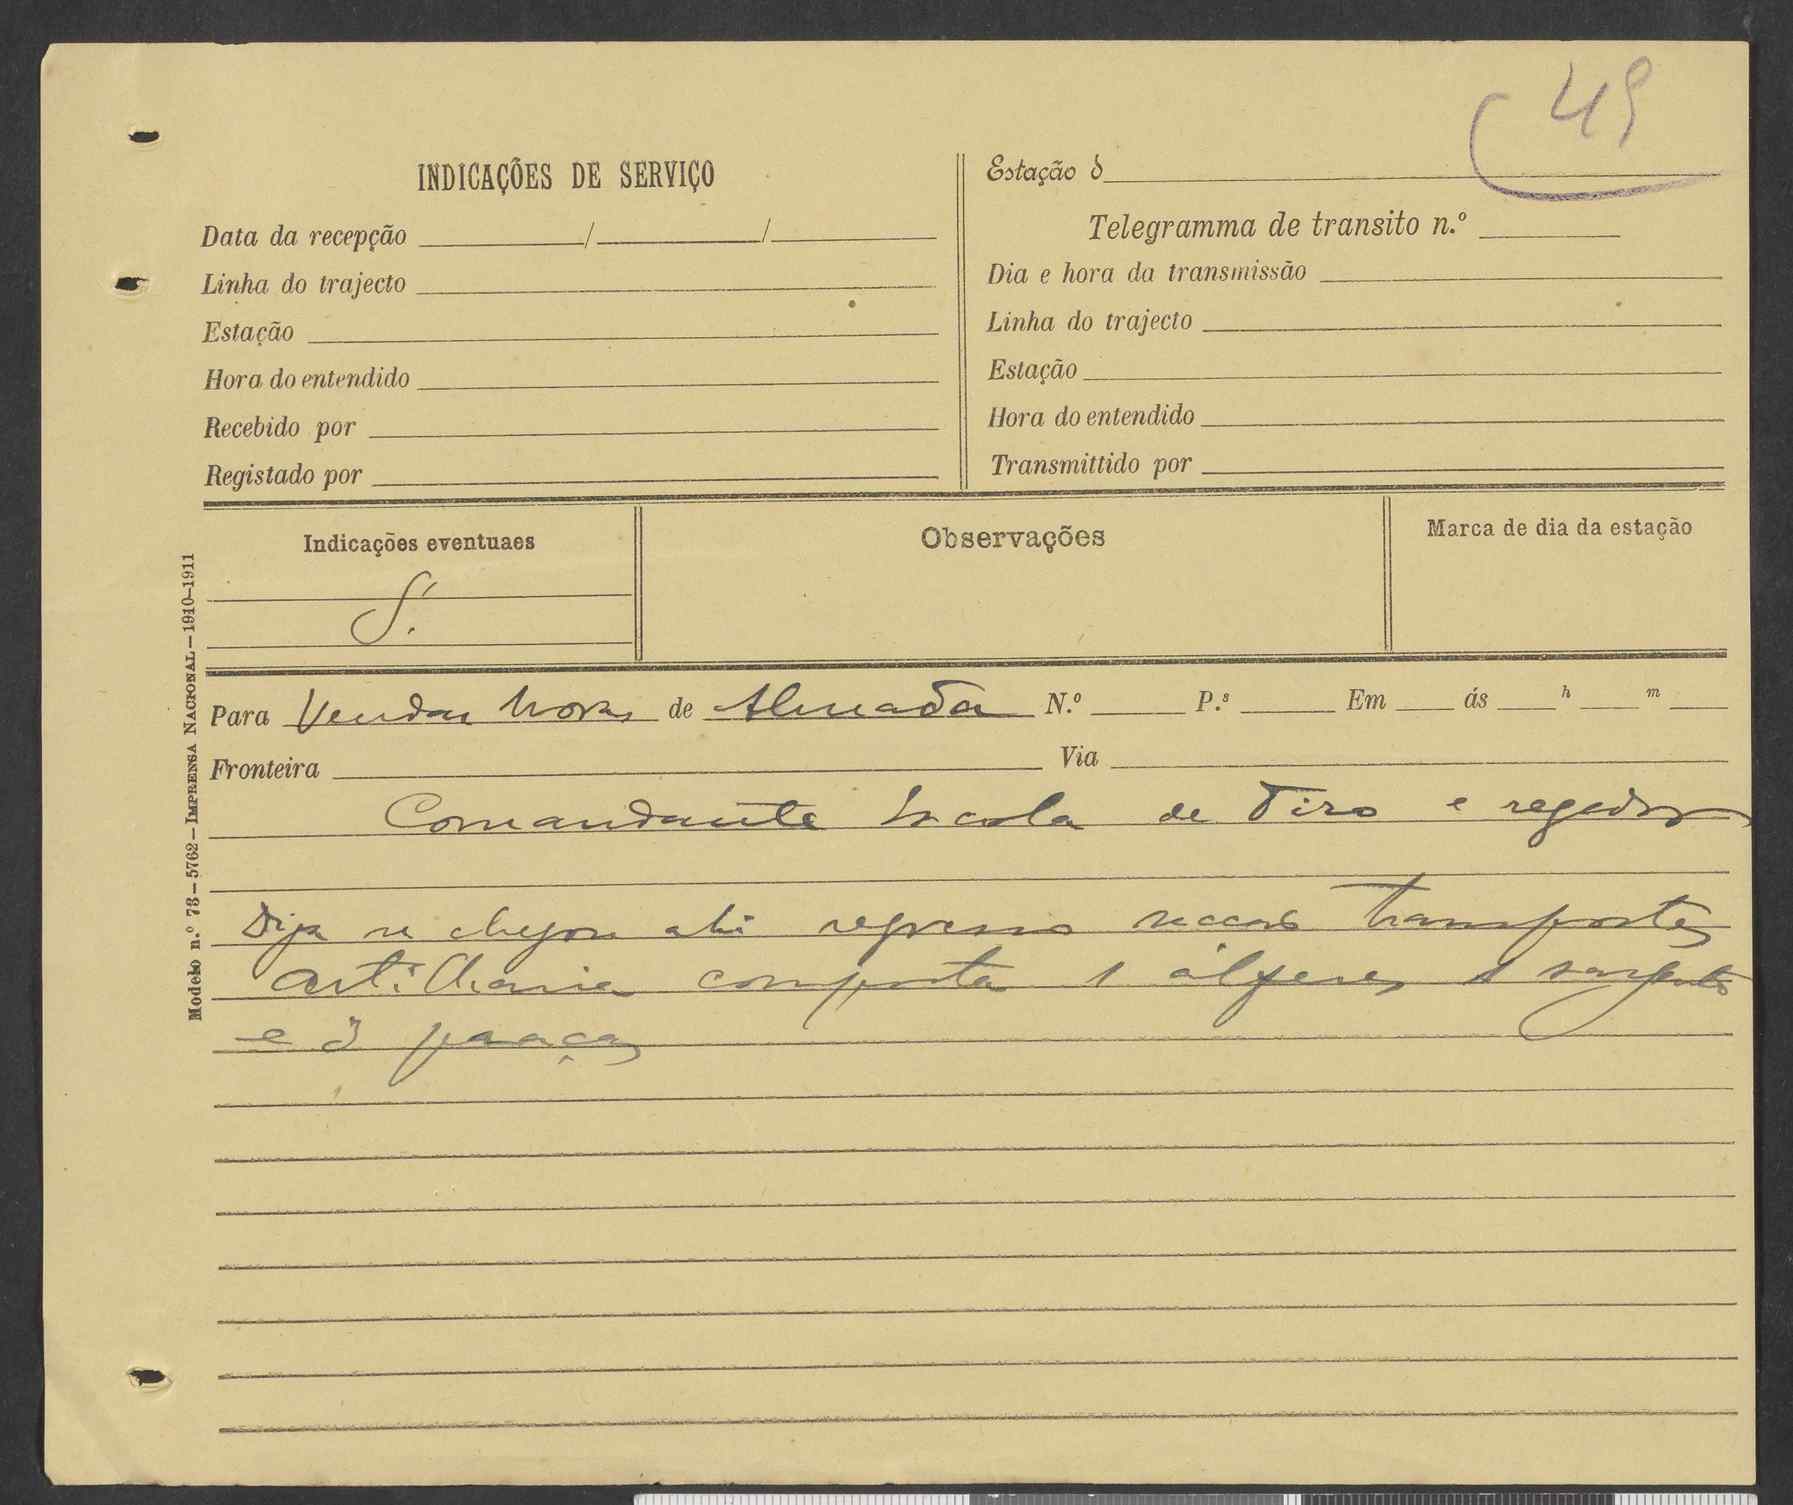 49
INDICAÇÕES DE SERVIÇO
Data da recepção / /
Linha do trajecto
Estação
Hora do entendido
Recebido por
Registado por
Estação d
Telegramma de transito n.º
Dia e hora da transmissão
Linha do trajecto
Estação
Hora do entendido
Transmittido por
Indicações eventuaes
S.
Observações
Marca de dia da estação
Para Vendas Novas de Almada N.º P.s Em ás h m
Fronteira Via
Comandante Escola de Tiro e regedor
Diga se chegou ahi regresso secção transportes
artilharia composta 1 alferes 1 sargento
e 3 praças
Modelo n.º 73 – 5762 – IMPRENSA NACIONAL – 1910–1911